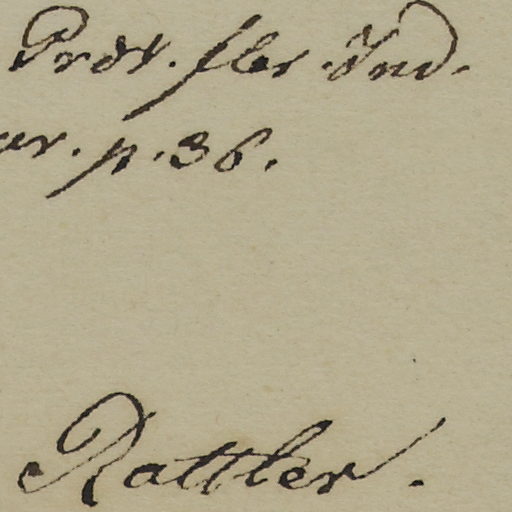 Prdr. fler. Ind.
ar. p. 36.
Rattler.